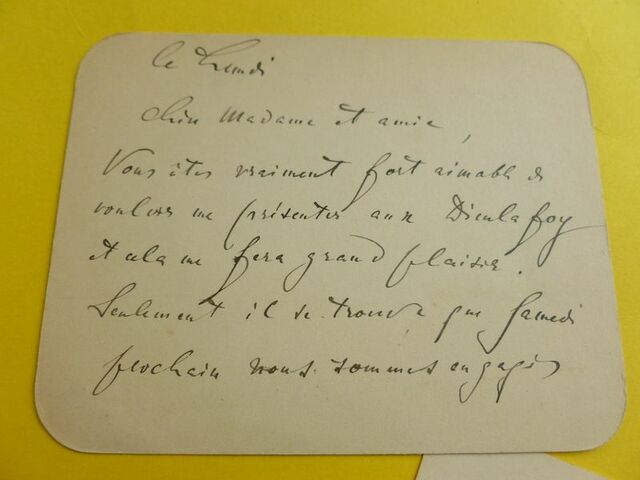 le Lundi
Chère Madame et amie,
Vous êtes vraiment fort aimable de
vouloir me présenter aux Dieulafoy
et cela me fera grand plaisir.
Seulement il se trouve que Samedi
prochain nous sommes engagés